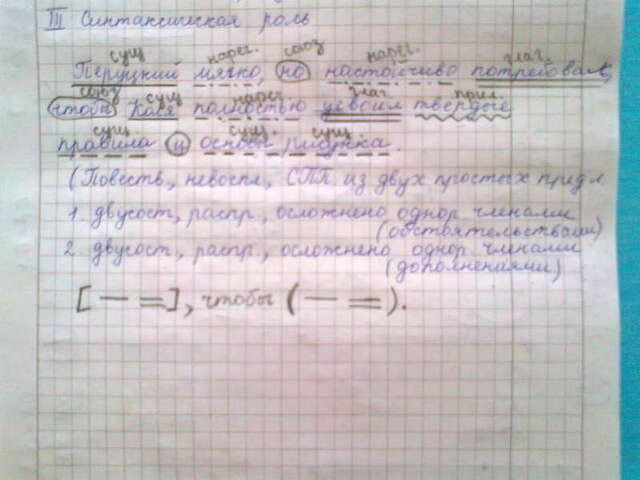 III Синтаксическая роль
сущ нареч. союз нареч. глаг.
Перуцкий мягко, но настойчиво потребовал,
союз сущ нареч. глаг. прил.
чтобы Коля полностью усвоил твердые
сущ сущ. сущ.
правила и основы рисунка.
(Повеств., невоскл., СПП из двух простых предл.
1. двусост., распр., осложнено однор членами
(обстоятельствами)
2. двусост., распр., осложнено однор членами
(дополнениями)
[— =], чтобы (— =).